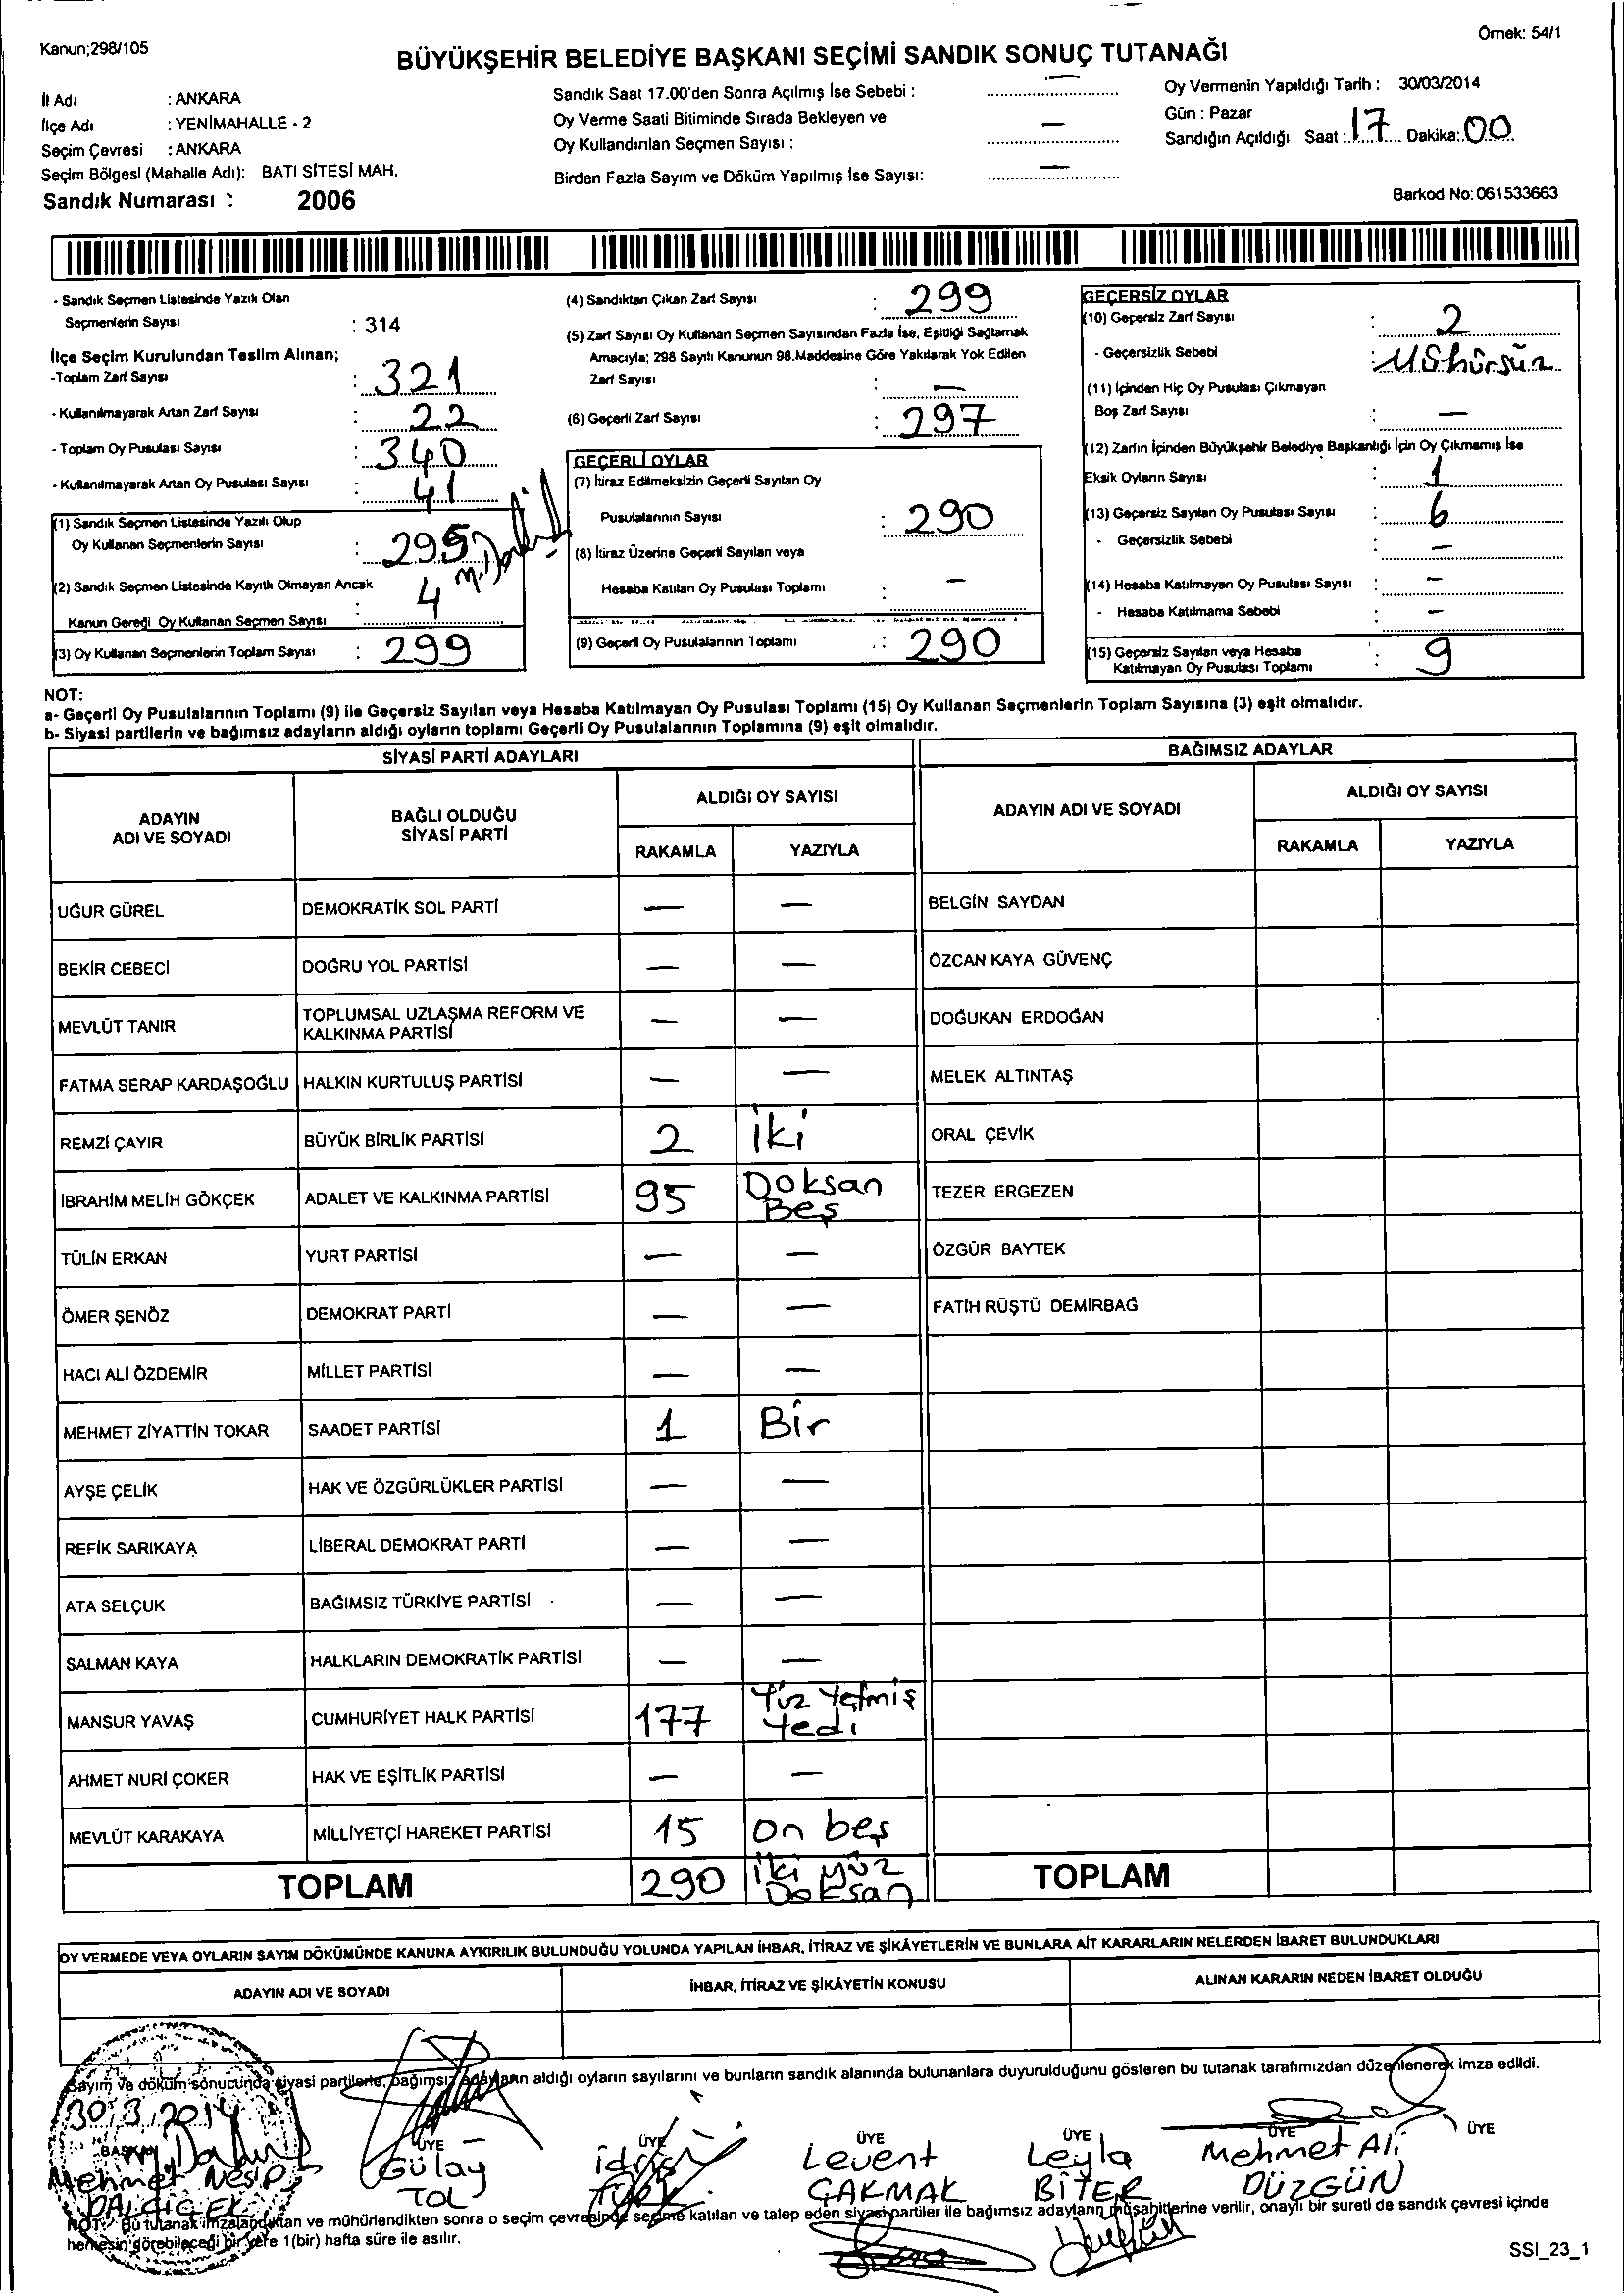 Kanun;298/105
Örnek: 54/1
BÜYÜKŞEHİR BELEDİYE BAŞKANI SEÇİMİ SANDIK SONUÇ TUTANAĞI
İl Adı : ANKARA
İlçe Adı : YENİMAHALLE - 2
Seçim Çevresi : ANKARA
Seçim Bölgesi (Mahalle Adı): BATI SİTESİ MAH.
Sandık Numarası : 2006
Sandık Saat 17.00'den Sonra Açılmış İse Sebebi : —
Oy Verme Saati Bitiminde Sırada Bekleyen ve
Oy Kullandırılan Seçmen Sayısı : —
Birden Fazla Sayım ve Döküm Yapılmış İse Sayısı: —
Oy Vermenin Yapıldığı Tarih : 30/03/2014
Gün : Pazar
Sandığın Açıldığı Saat : 17 Dakika: 00
Barkod No: 061533663
- Sandık Seçmen Listesinde Yazılı Olan
Seçmenlerin Sayısı : 314
İlçe Seçim Kurulundan Teslim Alınan;
-Toplam Zarf Sayısı : 321
- Kullanılmayarak Artan Zarf Sayısı : 22
- Toplam Oy Pusulası Sayısı : 340
- Kullanılmayarak Artan Oy Pusulası Sayısı : 41
(1) Sandık Seçmen Listesinde Yazılı Olup
Oy Kullanan Seçmenlerin Sayısı : 295
(2) Sandık Seçmen Listesinde Kayıtlı Olmayan Ancak
Kanun Gereği Oy Kullanan Seçmen Sayısı : 4
(3) Oy Kullanan Seçmenlerin Toplam Sayısı : 299
(4) Sandıktan Çıkan Zarf Sayısı : 299
(5) Zarf Sayısı Oy Kullanan Seçmen Sayısından Fazla İse, Eşitliği Sağlamak
Amacıyla; 298 Sayılı Kanunun 98.Maddesine Göre Yakılarak Yok Edilen
Zarf Sayısı : —
(6) Geçerli Zarf Sayısı : 297
GEÇERLİ OYLAR
(7) İtiraz Edilmeksizin Geçerli Sayılan Oy
Pusulalarının Sayısı : 290
(8) İtiraz Üzerine Geçerli Sayılan veya
Hesaba Katılan Oy Pusulası Toplamı : —
(9) Geçerli Oy Pusulalarının Toplamı : 290
GEÇERSİZ OYLAR
(10) Geçersiz Zarf Sayısı : 2
- Geçersizlik Sebebi : Mühürsüz
(11) İçinden Hiç Oy Pusulası Çıkmayan
Boş Zarf Sayısı : —
(12) Zarfın İçinden Büyükşehir Belediye Başkanlığı İçin Oy Çıkmamış İse
Eksik Oyların Sayısı : 1
(13) Geçersiz Sayılan Oy Pusulası Sayısı : 6
- Geçersizlik Sebebi : —
(14) Hesaba Katılmayan Oy Pusulası Sayısı : —
- Hesaba Katılmama Sebebi : —
(15) Geçersiz Sayılan veya Hesaba
Katılmayan Oy Pusulası Toplamı : 9
NOT:
a- Geçerli Oy Pusulalarının Toplamı (9) ile Geçersiz Sayılan veya Hesaba Katılmayan Oy Pusulası Toplamı (15) Oy Kullanan Seçmenlerin Toplam Sayısına (3) eşit olmalıdır.
b- Siyasi partilerin ve bağımsız adayların aldığı oyların toplamı Geçerli Oy Pusulalarının Toplamına (9) eşit olmalıdır.
SİYASİ PARTİ ADAYLARI BAĞIMSIZ ADAYLAR
ADAYIN ADI VE SOYADI BAĞLI OLDUĞU SİYASİ PARTİ ALDIĞI OY SAYISI ADAYIN ADI VE SOYADI ALDIĞI OY SAYISI
RAKAMLA YAZIYLA RAKAMLA YAZIYLA
UĞUR GÜREL DEMOKRATİK SOL PARTİ — — BELGİN SAYDAN
BEKİR CEBECİ DOĞRU YOL PARTİSİ — — ÖZCAN KAYA GÜVENÇ
MEVLÜT TANIR TOPLUMSAL UZLAŞMA REFORM VE KALKINMA PARTİSİ — — DOĞUKAN ERDOĞAN
FATMA SERAP KARDAŞOĞLU HALKIN KURTULUŞ PARTİSİ — — MELEK ALTINTAŞ
REMZİ ÇAYIR BÜYÜK BİRLİK PARTİSİ 2 iki ORAL ÇEVİK
İBRAHİM MELİH GÖKÇEK ADALET VE KALKINMA PARTİSİ 95 Doksan Beş TEZER ERGEZEN
TÜLİN ERKAN YURT PARTİSİ — — ÖZGÜR BAYTEK
ÖMER ŞENÖZ DEMOKRAT PARTİ — — FATİH RÜŞTÜ DEMİRBAĞ
HACI ALİ ÖZDEMİR MİLLET PARTİSİ — —
MEHMET ZİYATTİN TOKAR SAADET PARTİSİ 1 Bir
AYŞE ÇELİK HAK VE ÖZGÜRLÜKLER PARTİSİ — —
REFİK SARIKAYA LİBERAL DEMOKRAT PARTİ — —
ATA SELÇUK BAĞIMSIZ TÜRKİYE PARTİSİ — —
SALMAN KAYA HALKLARIN DEMOKRATİK PARTİSİ — —
MANSUR YAVAŞ CUMHURİYET HALK PARTİSİ 177 Yüz Yetmiş Yedi
AHMET NURİ ÇOKER HAK VE EŞİTLİK PARTİSİ — —
MEVLÜT KARAKAYA MİLLİYETÇİ HAREKET PARTİSİ 15 on beş
TOPLAM 290 iki yüz Doksan TOPLAM
OY VERMEDE VEYA OYLARIN SAYIM DÖKÜMÜNDE KANUNA AYKIRILIK BULUNDUĞU YOLUNDA YAPILAN İHBAR, İTİRAZ VE ŞİKÂYETLERİN VE BUNLARA AİT KARARLARIN NELERDEN İBARET BULUNDUKLARI
ADAYIN ADI VE SOYADI İHBAR, İTİRAZ VE ŞİKÂYETİN KONUSU ALINAN KARARIN NEDEN İBARET OLDUĞU
Sayım ve döküm sonucunda siyasi partilerle, bağımsız adayların aldığı oyların sayılarını ve bunların sandık alanında bulunanlara duyurulduğunu gösteren bu tutanak tarafımızdan düzenlenerek imza edildi.
30/3/2014
BAŞKAN ÜYE ÜYE ÜYE ÜYE ÜYE ÜYE
Mehmet Nesip Gülay idris Levent Leyla Mehmet Ali
DALÇİÇEK TOL ÇAKMAK BİTER DÜZGÜN
NOT: Bu tutanak imzalandıktan ve mühürlendikten sonra o seçim çevresinde seçime katılan ve talep eden siyasi partiler ile bağımsız adayların müşahitlerine verilir, onaylı bir sureti de sandık çevresi içinde
herkesin görebileceği bir yere 1(bir) hafta süre ile asılır.
SSI_23_1